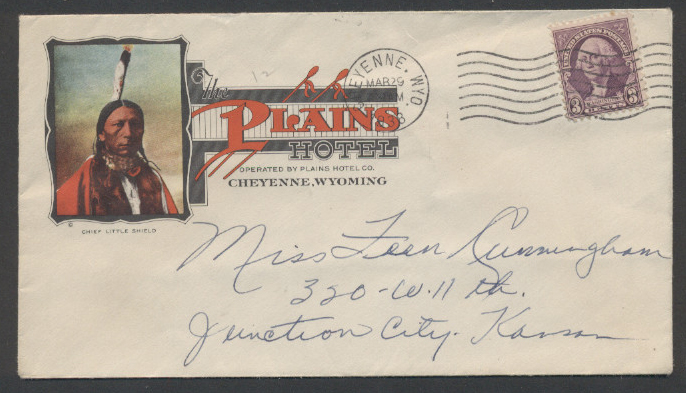 The
PLAINS
HOTEL
OPERATED BY PLAINS HOTEL CO.
CHEYENNE, WYOMING
© CHIEF LITTLE SHIELD
12
CHEYENNE, WYO
MAR 29
M
UNITED STATES POSTAGE
3 CENTS 3
Miss Fern Cunningham
320-W. 11 th.
Junction City. Kansas